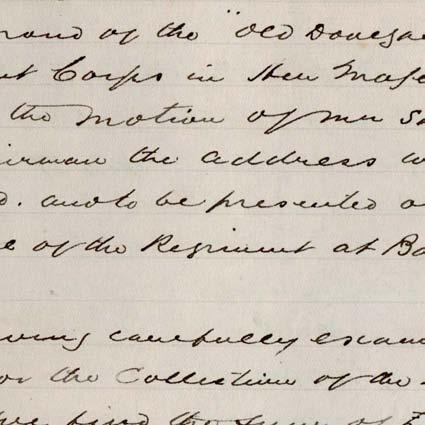 proud of the "Old Donega
nt Corps in Her Maje
the Motion of Mr S
airman the address w
d. and to be presented o
e of the Regiment at Ba
ving carefully exam
or the Collection of the
we find the Sum of